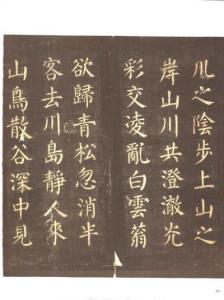 川之陰步上山之
岸山川共澄澈光
彩交凌亂白雲蓊
欲歸青松忽消半
客去川島靜人來
山鳥散谷深中見